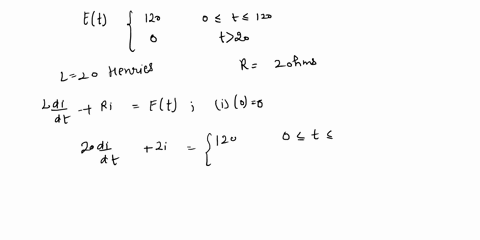 E(t) { 120   0 ≤ t ≤ 120
0   t>20
L=20 Henries   R= 2ohms
L di/dt + Ri = E(t) ; (i)(0)=0
20 di/dt + 2i = { 120   0 ≤ t ≤